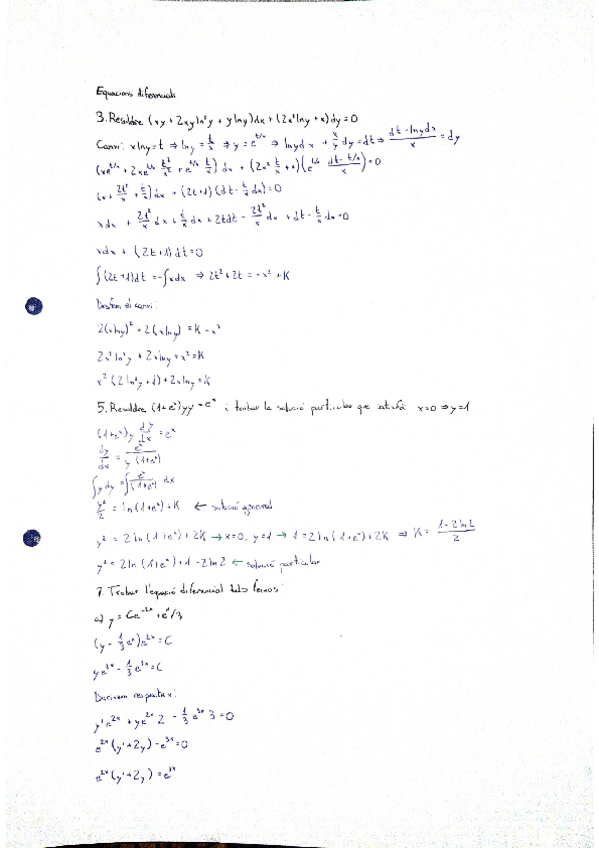 Equacions diferencials
3. Resoldre (xy + 2xy ln²y + y ln y)dx + (2x² ln y + x)dy = 0
Canvi: x ln y = t ⇒ ln y = t/x ⇒ y = e^(t/x) ⇒ ln y dx + x/y dy = dt ⇒ (dt - ln y dx)/x = dy
(xe^(t/x) + 2xe^(t/x) t²/x² + e^(t/x) t/x) dx + (2x² t/x + x)(e^(t/x) (dt - t/x)/x) = 0
(x + 2t²/x + t/x) dx + (2t+1)(dt - t/x dx) = 0
x dx + 2t²/x dx + t/x dx + 2t dt - 2t²/x dx + dt - t/x dx = 0
x dx + (2t+1)dt = 0
∫(2t+1)dt = -∫x dx ⇒ 2t² + 2t = -x² + K
Desfem el canvi:
2(x ln y)² + 2(x ln y) = K - x²
2x² ln²y + 2x ln y + x² = K
x²(2 ln²y + 1) + 2x ln y = K
5. Resoldre (1+e^x)yy' = e^x i trobar la solució particular que satisfà x=0 ⇒ y=1
(1+e^x)y dy/dx = e^x
dy/dx = e^x/(y(1+e^x))
∫y dy = ∫e^x/(1+e^x) dx
y²/2 = ln(1+e^x) + K ← solució general
y² = 2 ln(1+e^x) + 2K → x=0, y=1 → 1 = 2 ln(1+e^x) + 2K ⇒ K = (1-2 ln 2)/2
y² = 2 ln(1+e^x) + 1 - 2 ln 2 ← solució particular
7. Trobar l'equació diferencial dels feixos:
a) y = Ce^(-2x) + e^x/3
(y - 1/3 e^x)e^(2x) = C
ye^(2x) - 1/3 e^(3x) = C
Derivem respecte x:
y'e^(2x) + ye^(2x) 2 - 1/3 e^(3x) 3 = 0
e^(2x)(y' + 2y) - e^(3x) = 0
e^(2x)(y' + 2y) = e^(3x)